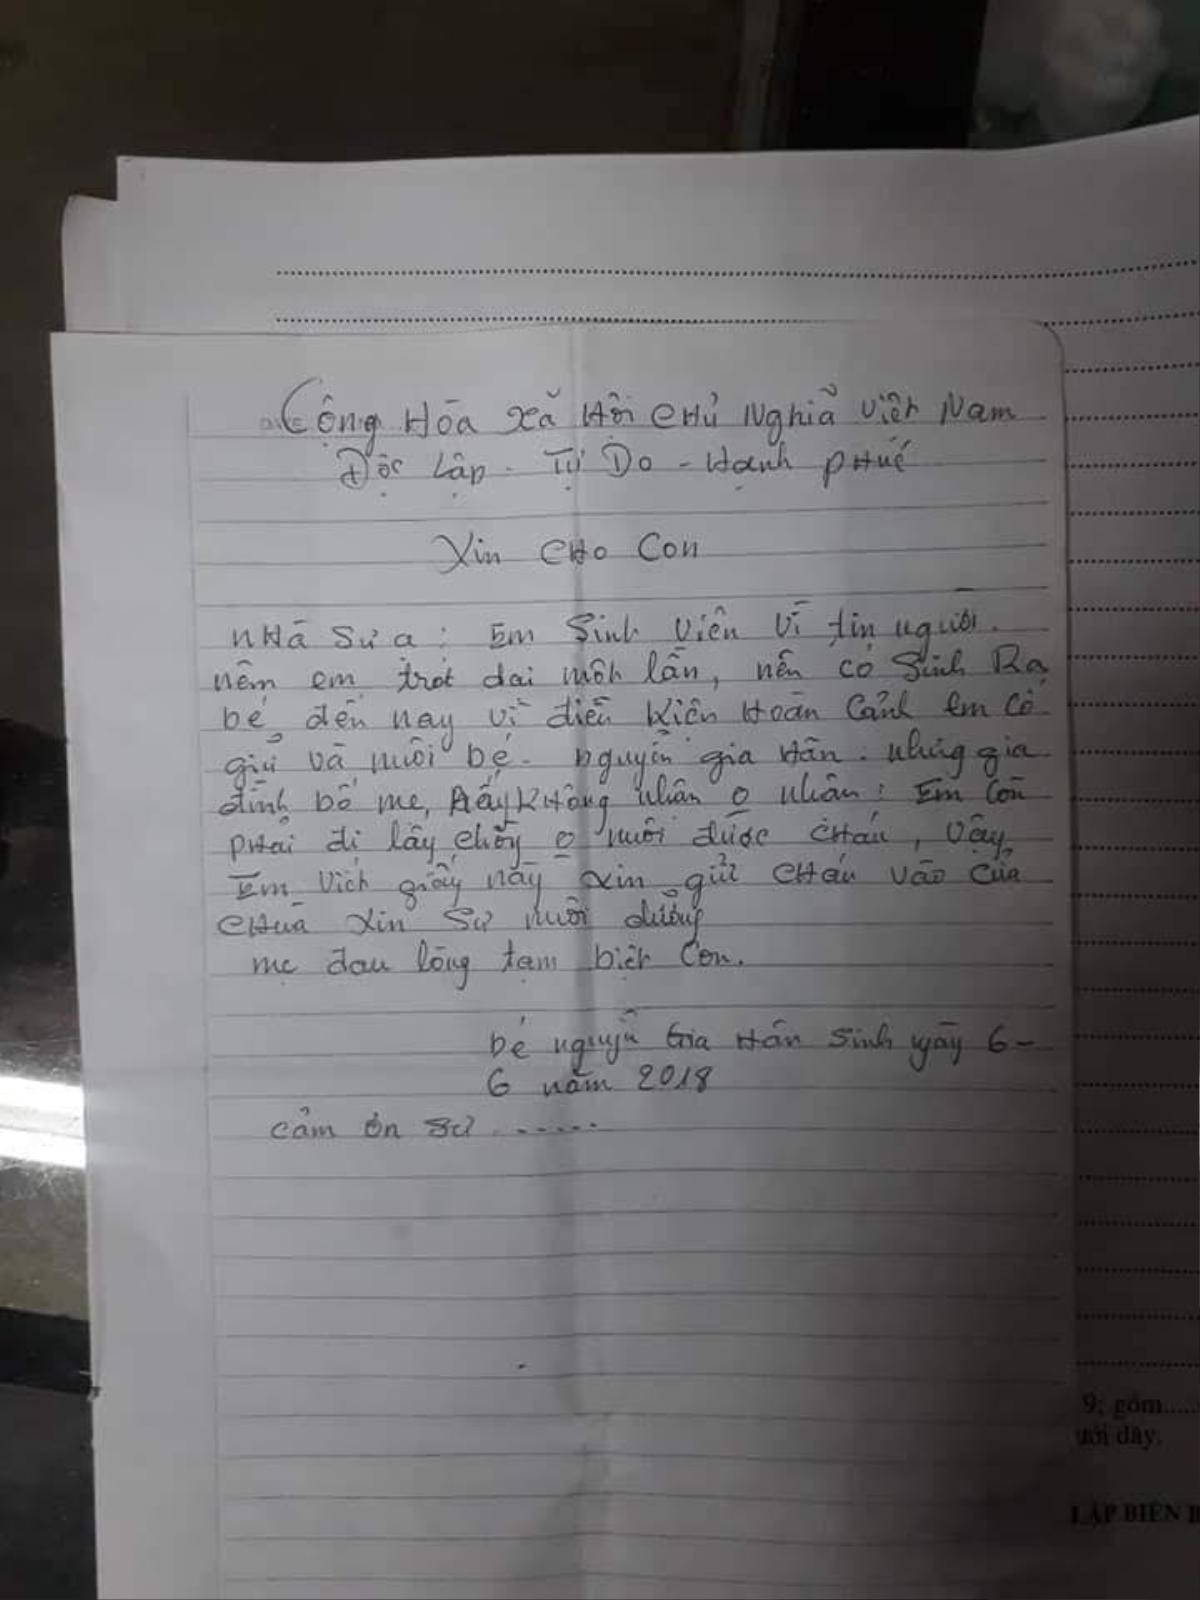 Cộng Hòa Xã Hôi CHủ Nghiã Việt Nam
Độc Lập - Tự Do - Hạnh PHúc
Xin CHo Con
NHà Sư a: Em Sinh Viên Vì tin người.
nêm em trót dại một lần, nên có Sinh Ra
bé đến nay vì điều Kiện Hoàn Cảnh Em Có
giữ và nuôi bé. nguyễn gia Hân. nhưng gia
đình bố mẹ, Đấy KHông nhân o nhân: Em Còn
PHải đi lấy chồng o nuôi được CHáu, Vậy
Em Viết giấy này xin gửi CHáu vào Cửa
CHùa Xin Sư nuôi dưỡng
mẹ đau lòng tạm biệt Con.
bé nguyễn Gia Hân Sinh ngày 6-
6 năm 2018
cảm ơn sư ......
9; gồm.....
ưới đây.
LẬP BIÊN B